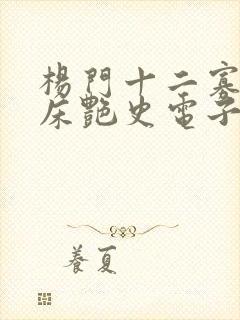 楊門十二寡
床艷史電子
養夏